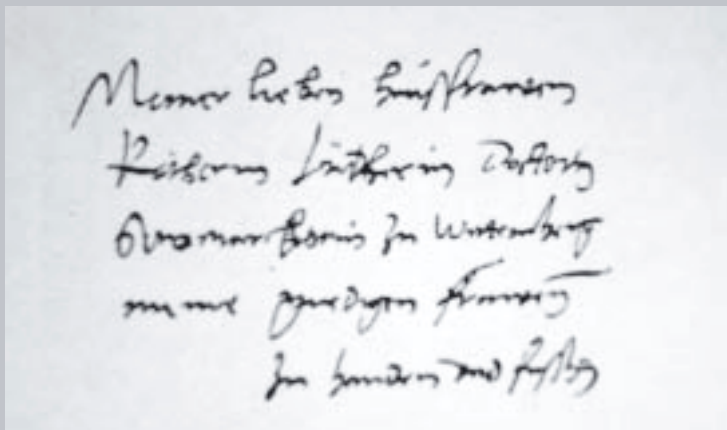 Meiner lieben hausfrawen
Katherin Lutherin doctorin
Sewmarckterin zu Wittemberg
meiner gnedigen frawen
zu handen und fussen